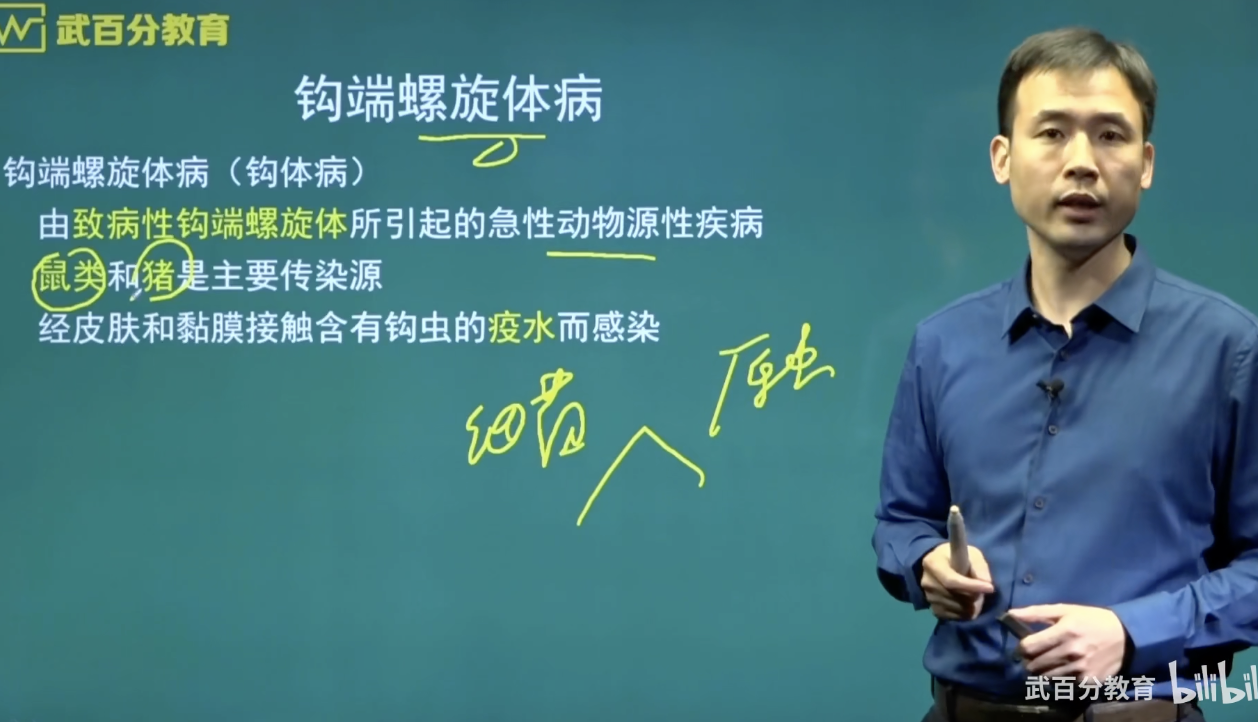 武百分教育
钩端螺旋体病
钩端螺旋体病（钩体病）
由致病性钩端螺旋体所引起的急性动物源性疾病
鼠类和猪是主要传染源
经皮肤和黏膜接触含有钩虫的疫水而感染
原虫
细菌
武百分教育 bilibil